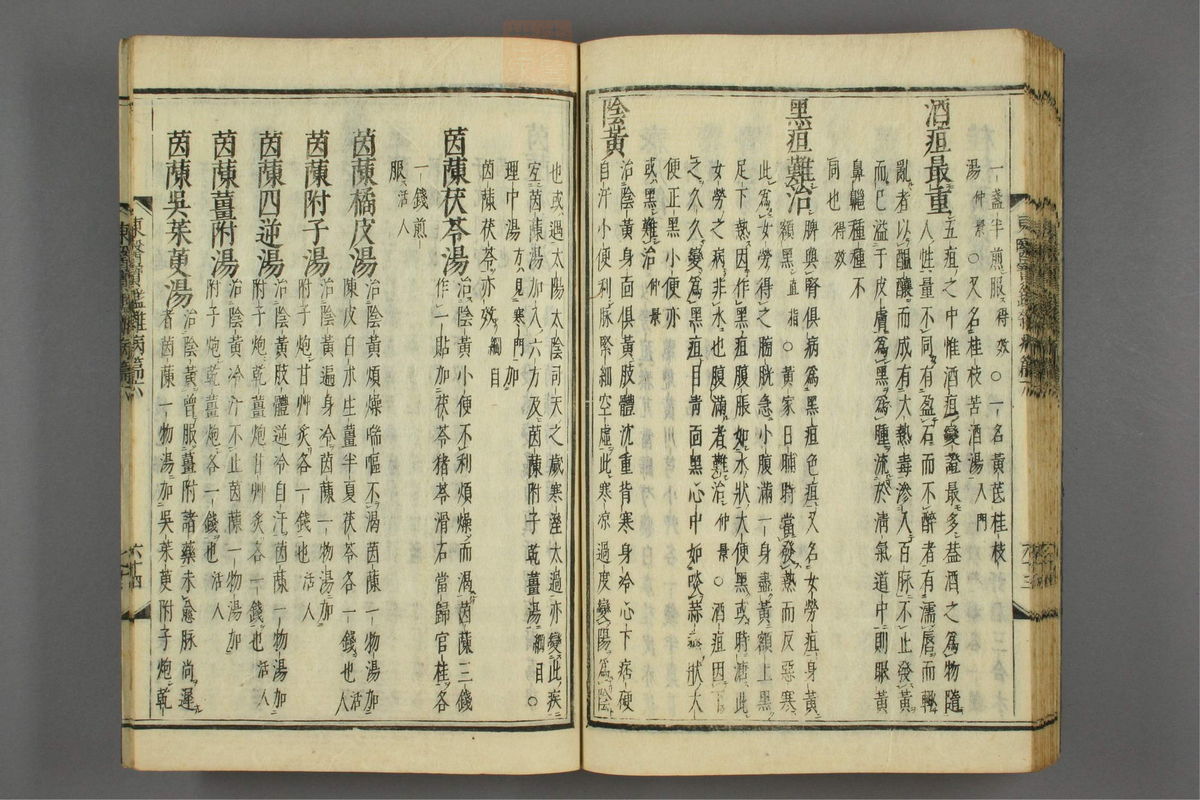 一盞半煎服得效○一名黃芪桂枝
湯仲景○又名桂枝苦酒湯入門
酒疸最重
五疸之中惟酒疸變證最多盖酒之爲物隨
人性量不同有盈石而不醉者有濡唇而輒
亂者以醞釀而成有大熱毒滲入百脉不止發黃
而已溢于皮膚爲黑爲腫流於淸氣道中則眼黃
鼻齆種種不
同也得效
黑疸難治
脾與腎俱病爲黑疸色疸又名女勞疸身黃
額黑直指○黃家日晡時當發熱而反惡寒
此爲女勞得之膀胱急小腹滿一身盡黃額上黑
足下熱因作黑疸腹脹如水狀大便黑或時溏此
女勞之病非水也腹滿者難治仲景○酒疸因下
之久久變爲黑疸目靑面黑心中如啖蒜狀大
便正黑小便亦
或黑難治仲景
陰黃
治陰黃身面俱黃肢體沈重背寒身冷心下痞硬
自汗小便利脉緊細空虛此寒凉過度變陽爲陰
也或過太陽太陰司天之歲寒濕太過亦變此疾
宜茵蔯湯加入六方及茵蔯附子乾薑湯綱目○
理中湯方見寒門加
茵蔯茯苓亦效綱目
茵蔯茯苓湯
治陰黃小便不利煩燥而渴茵蔯三錢
作一貼加茯苓猪苓滑石當歸官桂各
一錢煎
服活人
茵蔯橘皮湯
治陰黃煩燥喘嘔不渴茵蔯一物湯加
陳皮白朮生薑半夏茯苓各一錢也活人
茵蔯附子湯
治陰黃遍身冷茵蔯一物湯加
附子炮甘艸灸各一錢也活人
茵蔯四逆湯
治陰黃肢體逆冷自汗茵蔯一物湯加
附子炮乾薑炮甘艸灸各一錢也活人
茵蔯薑附湯
治陰黃冷汁不止茵蔯一物湯加
附子炮乾薑炮各一錢也活人
茵蔯吳茱萸湯
治陰黃曾服薑附諸藥未愈脉尚遲
者茵蔯一物湯加吳茱萸附子炮
東醫寶鑑雜病篇六
六十四